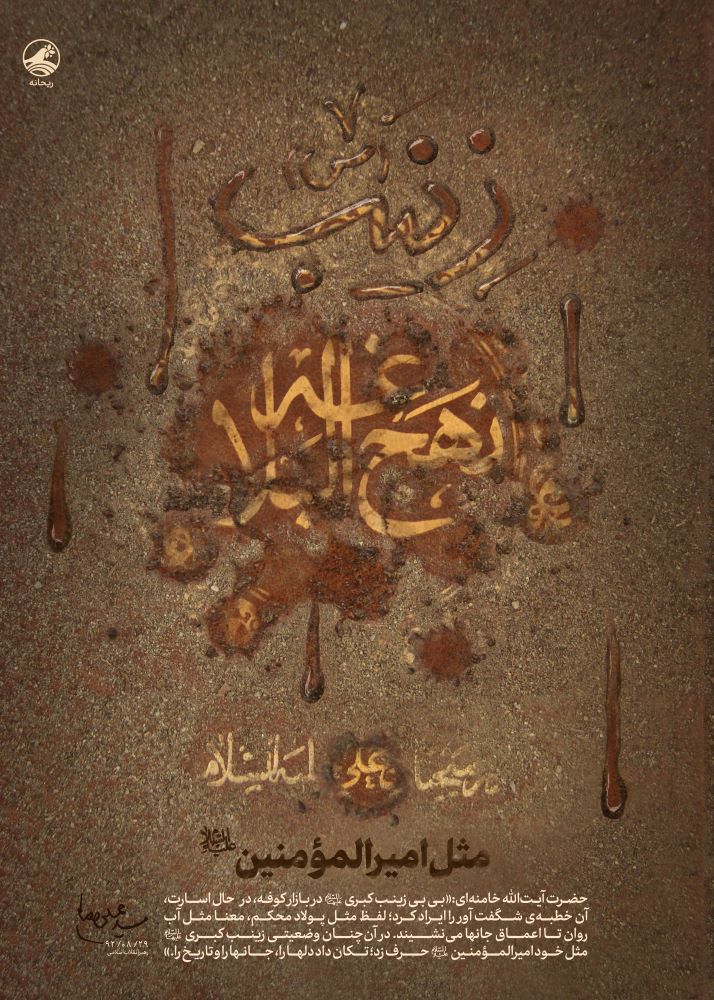 ریحانه
زینب (س)
نهج البلاغه
علی علیه السلام
مثل امیرالمؤمنین علیه‌السلام
حضرت آیت‌الله خامنه‌ای: «بی بی زینب کبری در بازار کوفه، در حال اسارت،
آن خطبه‌ی شگفت آور را ایراد کرد؛ لفظ مثل پولاد محکم، معنا مثل آب
روان تا اعماق جانها می‌نشیند. در آن چنان وضعیتی زینب کبری
مثل خود امیرالمؤمنین حرف زد؛ تکان داد دلها را، جانها را و تاریخ را.»
۹۲/۰۸/۲۹
رهبر انقلاب اسلامی